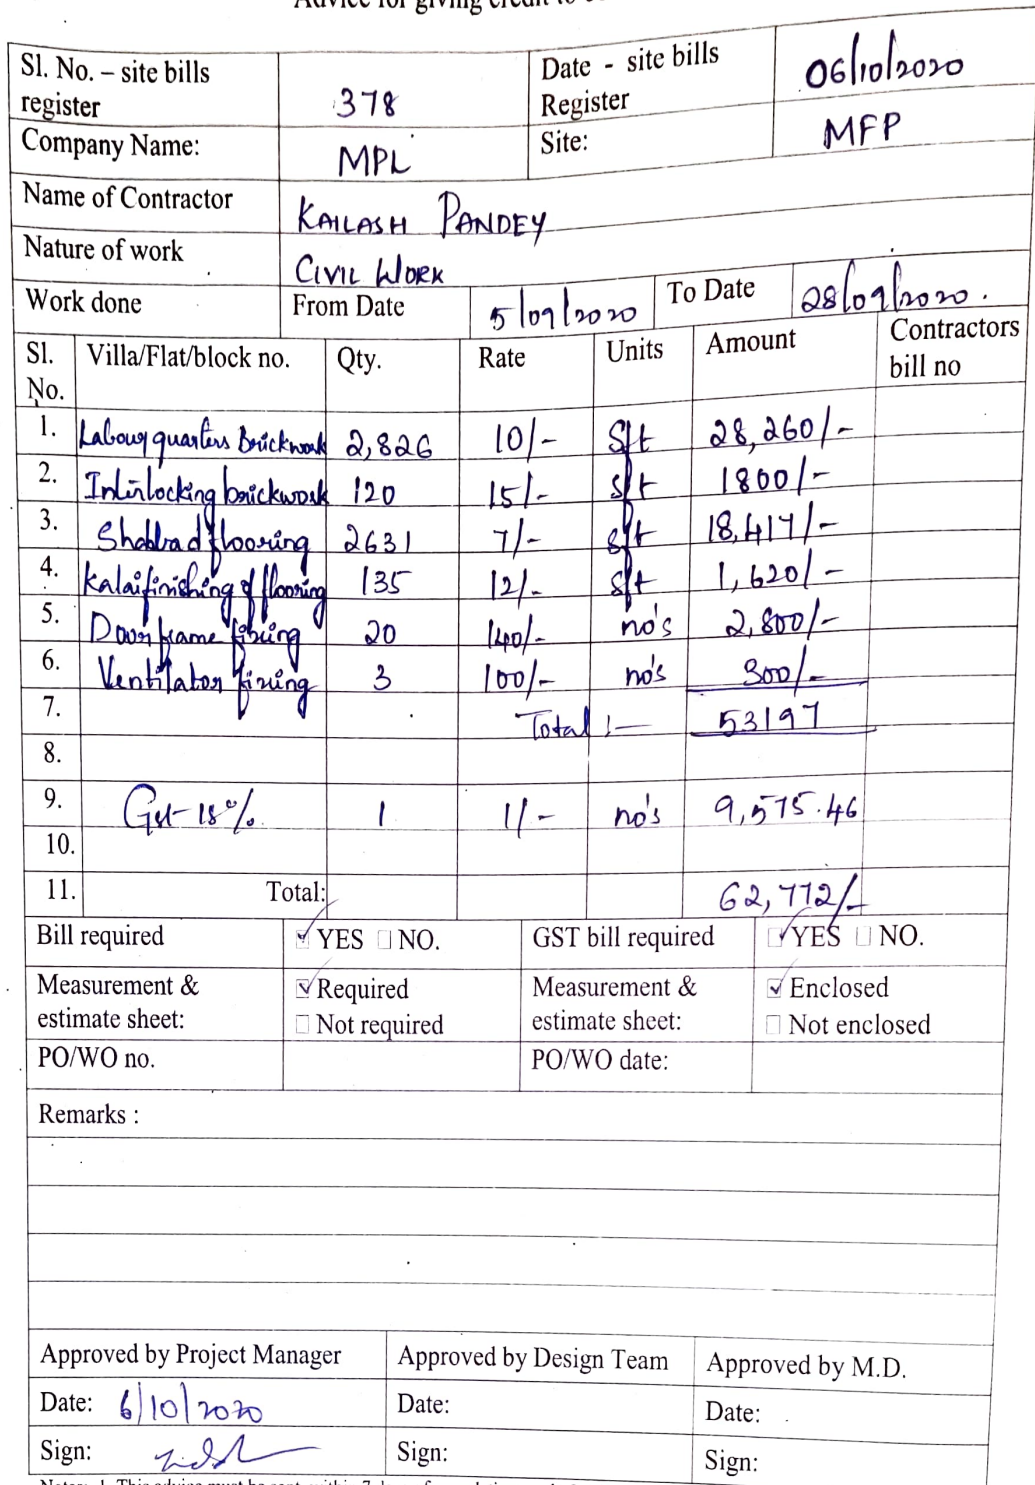 Advice for giving credit to
Sl. No. – site bills register 378 Date - site bills Register 06/10/2020
Company Name: MPL Site: MFP
Name of Contractor KAILASH PANDEY
Nature of work CIVIL WORK
Work done From Date 5/09/2020 To Date 28/09/2020.
Sl. No. Villa/Flat/block no. Qty. Rate Units Amount Contractors bill no
1. Labour quarters Brickwork 2,826 10/- Sft 28,260/-
2. Interlocking brickwork 120 15/- sft 1800/-
3. Shabad flooring 2631 7/- sft 18,417/-
4. Kalaifinishing of flooring 135 12/- sft 1,620/-
5. Door frame fixing 20 140/- no's 2,800/-
6. Ventilator fixing 3 100/- no's 300/-
7. Total :— 53197
8.
9. Gst 18% 1 1/- no's 9,575.46
10.
11. Total: 62,772/-
Bill required YES NO. GST bill required YES NO.
Measurement & estimate sheet: Required Not required Measurement & estimate sheet: Enclosed Not enclosed
PO/WO no. PO/WO date:
Remarks :
Approved by Project Manager Approved by Design Team Approved by M.D.
Date: 6/10/2020 Date: Date:
Sign: Sign: Sign: